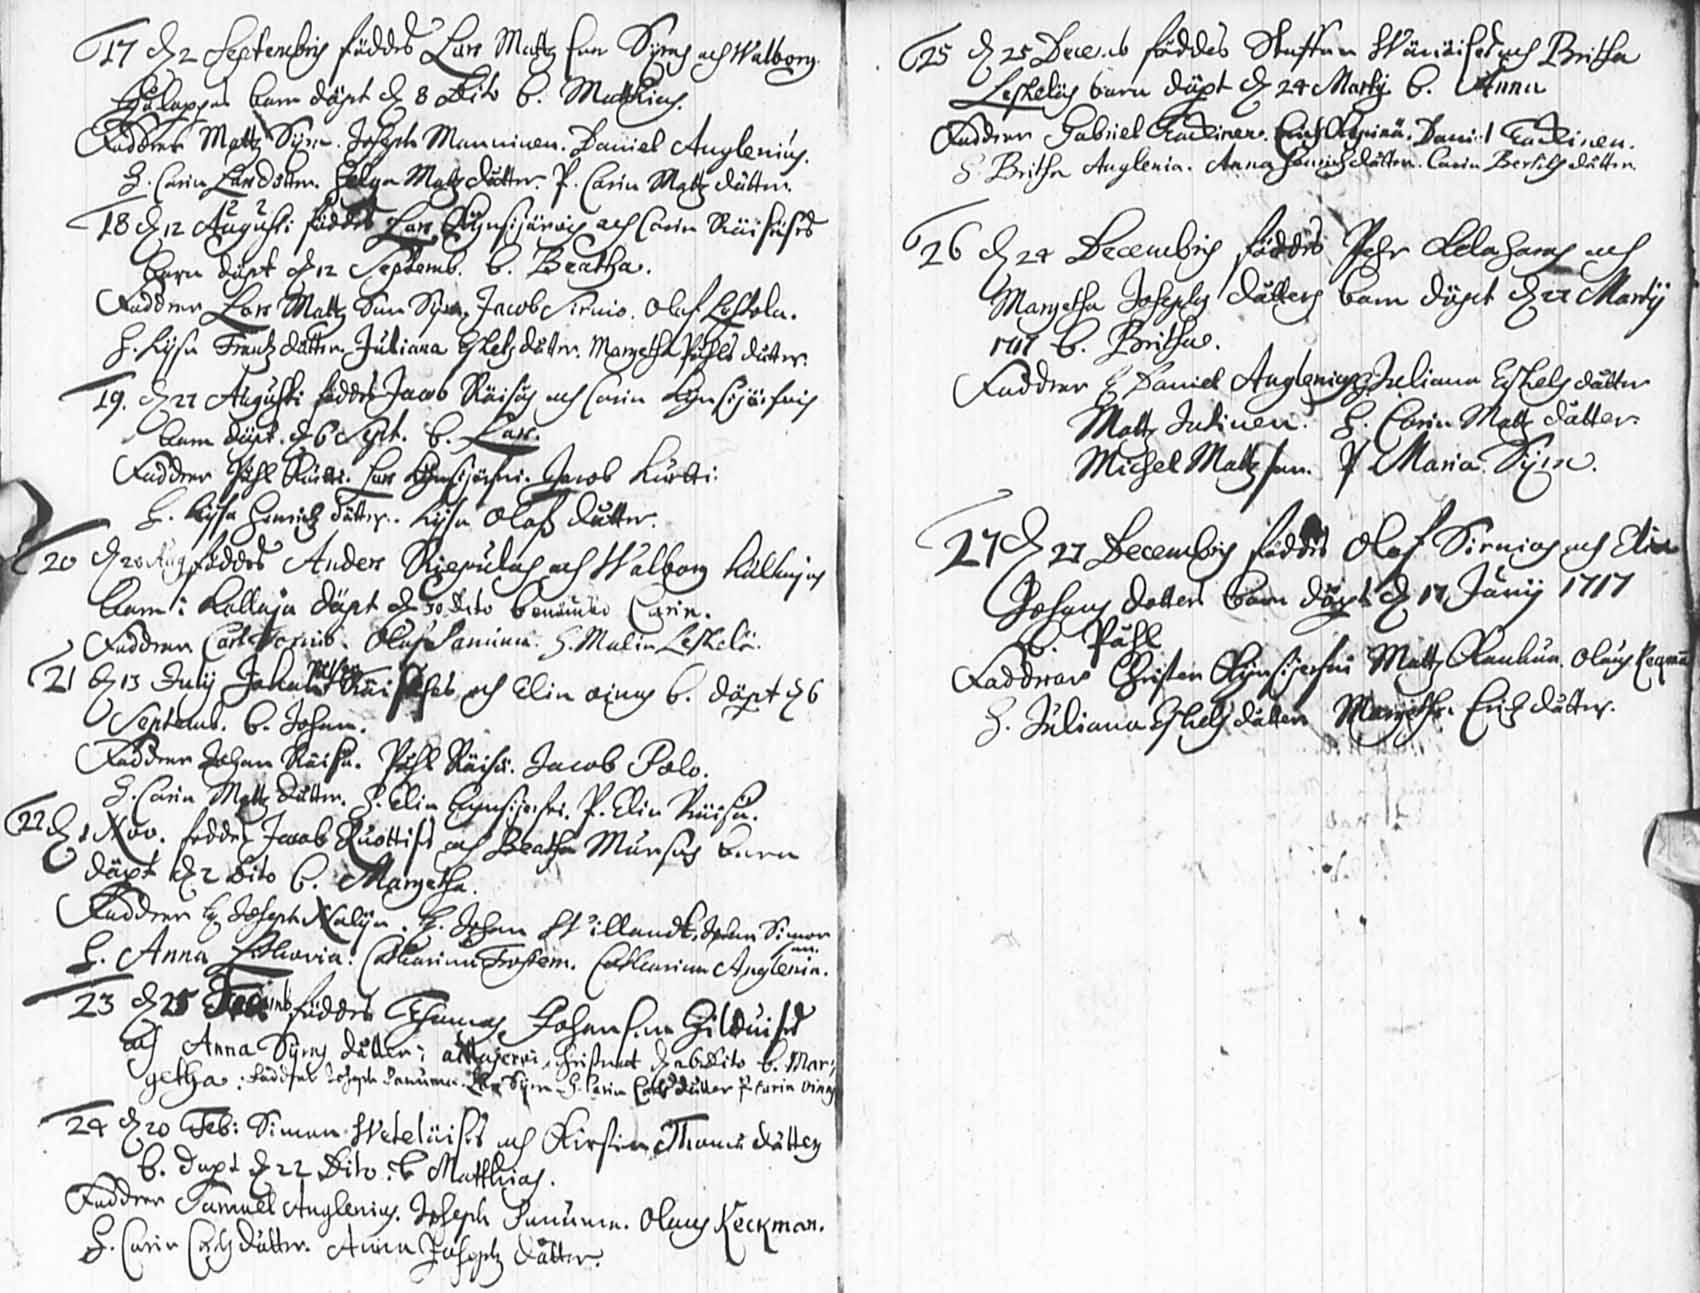 17 d 2 Septembris föddes Lars Mattz Son Syrns och Walborg
barn döpt d 8 Dito b. Matthias.
Faddrar Mattz Syrn. Joseph Manninen. Daniel Anglenius.
H. Carin Larsdotter. Helga Mattz dåtter. P. Carin Mattz dåtter.
18 d 12 Augusti föddes Lars Kynsijärvis och Carin Räisäses
barn döpt d 12 Septemb. b. Beatha.
Faddrar Lars Mattz Son Syrn. Jacob Sirnio. Olof Leskela.
H. Lisa Frantz dåtter. Juliana Eskels dåter. Margetha Påhls dåtter.
19. d 27 Augusti föddes Jacob Räisäs och Carin Kynsijärfvis
barn döpt. d 6 Sept. b. Lars.
Faddrar Påhl Räisä. Lars Kynsijärfvi. Jacob Kurtti.
H. Lisa Henrichz dåtter. Lisa Olofs dåtter.
20 d 20 Aug föddes Anders Riepulas och Walborg Kalliajas
barn i Kalliaja döpt d 30 Dito benämdt Carin.
Faddrar Carl Sirnio. Olof Panuma. H. Malin Leskelä.
21 d 13 Julij Johan Räisäses och Elin oinas b. döpt d 6
Septemb. b. Johan.
Faddrar Johan Räisä. Påhl Räisä. Jacob Polo.
H. Carin Mattz dåtter. H. Elin Kynsijerfvi. P. Elin Räisä.
22 d 1 Nov. föddes Jacob Kuottis och Beatha Mursus barn
döpt d 2 Dito b. Margetha.
Faddrar H. Joseph Kalijn. H. Johan Willandt. Johan Simon
son.
H. Anna Catharina Frostem. Catharina Anglenia.
23 d 25 föddes Thomas Johanson
och Anna Syrns dåtter i christnat d 26 Dito b. Mar-
getha. Faddrar Joseph Panuma. Lars Syrn. H. Carin Carls dåtter P. Carin Oinas
24 d 20 Feb: Simon Weteläises och Kirstin Thomas dåtters
b. döpt d 22 Dito. b Matthias.
Faddrar Samuel Anglenius. Joseph Panuma. Olaus Keckman.
H. Carin Carls dåtter. Anna Josephz dåtter.
25 d 25 Decemb föddes Staffan och Britha
Leskeläs barn döpt d 24 Martij b. Anna
Faddrar Gabriel Daniel
H. Britha Anglenia. Anna Henrichzdåtter. Carin Bertils dåtter.
26 d 24 Decembris föddes Pehr och
Margetha Josephz dåtters barn döpt d 22 Martij
1717 b. Britha.
Faddrar H Daniel Anglenius. Juliana Eskels dåtter
Mattz Jutinen. H. Carin Mattz dåtter.
Michel Mattzson. P Maria Syrn.
27 d 27 Decembris föddes Olof Sirnios och Elin
Johans dotters barn döpt d 17 Junij 1717
b. Påhl
Faddrar Christer Kynsijerfvi Mattz Olaus Kecman
H. Juliana Eskels dåtter Margetha Erich dåtter.